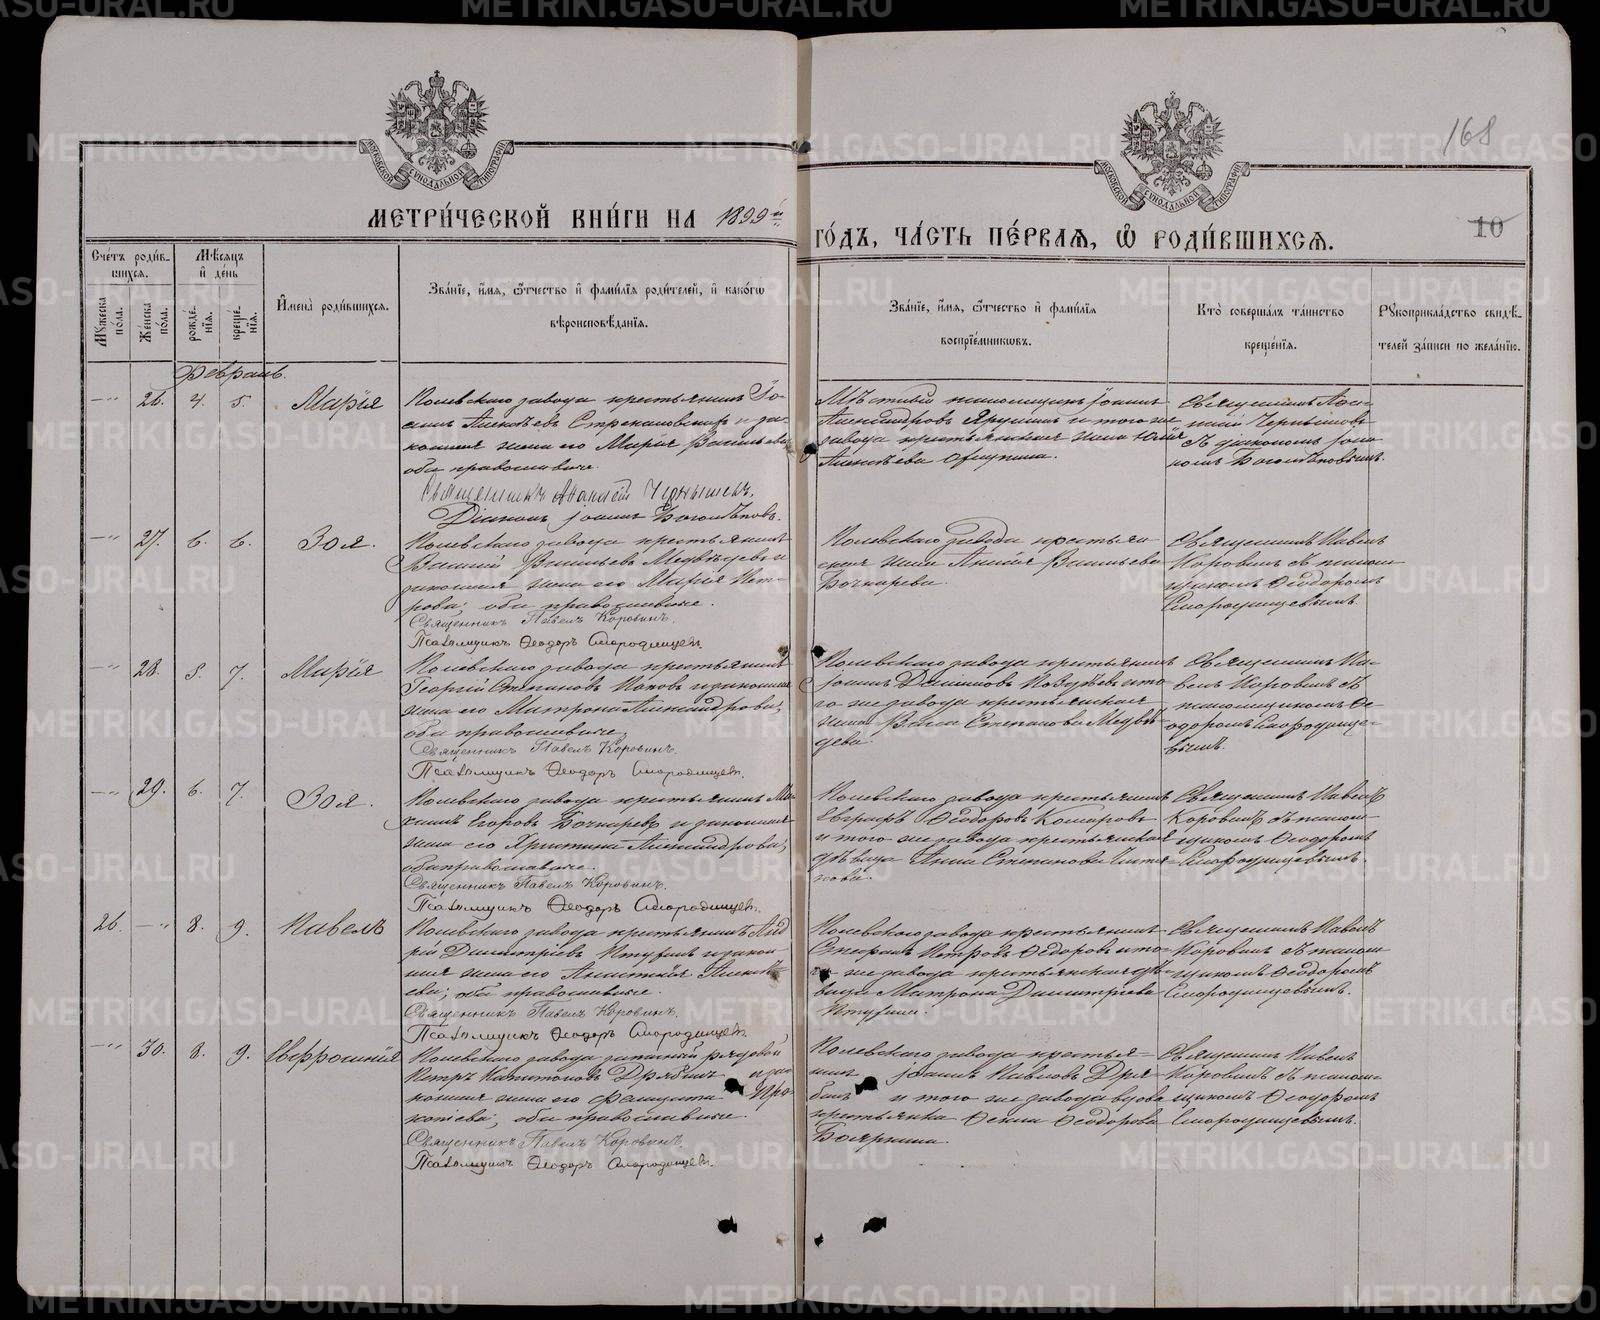 168
МОСКОВСКОЙ СѴНОДАЛЬНОЙ ТИПОГРАФІИ
МОСКОВСКОЙ СѴНОДАЛЬНОЙ ТИПОГРАФІИ
МЕТРИ́ЧЕСКОЙ КНИ́ГИ НА 1899й
ГО́ДЪ, ЧА́СТЬ ПЕ́РВАЯ, Ѿ РОДИ́ВШИХСЯ.
10
Сче́тъ роди́в-
шихся.
Мѣсяцъ
и де́нь
Мужеска
по́ла.
Же́нска
по́ла.
рожде́-
нія.
креще́-
нія.
Имена̀ роди́вшихся.
Зва́ніе, и́мя, ѻ́тчество и фами́лія роди́телей, и како́гѡ
вѣроисповѣ́данія.
Зва́ніе, и́мя, ѻ́тчество и фами́лія
воспріе́мниковъ.
Кто̀ соверша́лъ та́инство
креще́нія.
Рукоприкла́дство свидѣ́-
телей за́писи по жела́нію.
Февраль.
26. 4. 5. Марія
Полевскаго завода крестьянинъ Іо-
аннъ Алексѣевъ и за-
конная жена его Марія Васильева
оба православные.
Священникъ Аѳанасій Чернышевъ.
Діаконъ Іоаннъ Боголѣповъ.
Мѣстный псаломщикъ Іоаннъ
Александровъ и того же
завода крестьянская жена Юлія
Алексѣева
Священникъ Аѳа-
насій Чернышевъ
съ діакономъ Іоан-
номъ Боголѣповымъ.
27. 6. 6. Зоя.
Полевскаго завода крестьянинъ
Василій Васильевъ Медвѣдевъ и
законная жена его Марія Пет-
рова; оба православные.
Священникъ Павелъ Коровинъ.
Псаломщикъ Ѳеодоръ Смородинцевъ.
Полевскаго завода крестьян-
ская жена Васильева
Бочкарева.
Священникъ Павелъ
Коровинъ съ псалом-
щикомъ Ѳеодоромъ
Смородинцевымъ.
28. 5. 7. Марія
Полевскаго завода крестьянинъ
Георгій Степановъ Поповъ и законная
жена его Матрона Александрова;
оба православные.
Священникъ Павелъ Коровинъ.
Псаломщикъ Ѳеодоръ Смородинцевъ.
Полевскаго завода крестьянинъ
Іоаннъ и то-
го же завода крестьянская
жена Васса Степанова Медвѣ-
дева.
Священникъ Па-
велъ Коровинъ съ
псаломщикомъ Ѳе-
одоромъ Смородинце-
вымъ.
29. 6. 7. Зоя.
Полевскаго завода крестьянинъ Ми-
хаилъ Егоровъ Бочкаревъ и законная
жена его Христина Александрова;
оба православные.
Священникъ Павелъ Коровинъ.
Псаломщикъ Ѳеодоръ Смородинцевъ.
Полевскаго завода крестьянинъ
Евграфъ Ѳеодоровъ Комаровъ
и того же завода крестьянская
дѣвица Анна Степанова
Священникъ Павелъ
Коровинъ съ псалом-
щикомъ Ѳеодоромъ
Смородинцевымъ.
26. 8. 9. Павелъ
Полевскаго завода крестьянинъ Анд-
рей Димитріевъ и закон-
ная жена его Анастасія Алексѣ-
ева; оба православные.
Священникъ Павелъ Коровинъ.
Псаломщикъ Ѳеодоръ Смородинцевъ.
Полевскаго завода крестьянинъ
Стефанъ Петровъ Ѳедоровъ и то-
го же завода крестьянская дѣ-
вица Матрона Димитріева
Священникъ Павелъ
Коровинъ съ псалом-
щикомъ Ѳеодоромъ
Смородинцевымъ.
30. 8. 9. Евфросинія
Полевскаго завода запасный рядовой
Петръ Капитоновъ Дрябинъ и за-
конная жена его Фемуста Про-
копіева; оба православные.
Священникъ Павелъ Коровинъ.
Псаломщикъ Ѳеодоръ Смородинцевъ.
Полевскаго завода крестья-
нинъ Іоаннъ Павловъ Дря-
бинъ и того же завода вдова
крестьянка Ѳеодорова
Бояркина.
Священникъ Павелъ
Коровинъ съ псалом-
щикомъ Ѳеодоромъ
Смородинцевымъ.
METRIKI.GASO-URAL.RU